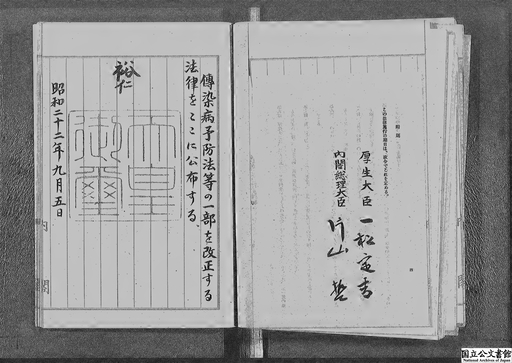 傳染病予防法等の一部を改正する
法律をここに公布する
裕仁
天皇
御璽
昭和二十二年九月五日
内閣
附則
この法律施行の期日は、政令でこれを定める。
厚生大臣 一松定吉
内閣総理大臣 片山哲
国立公文書館
National Archives of Japan